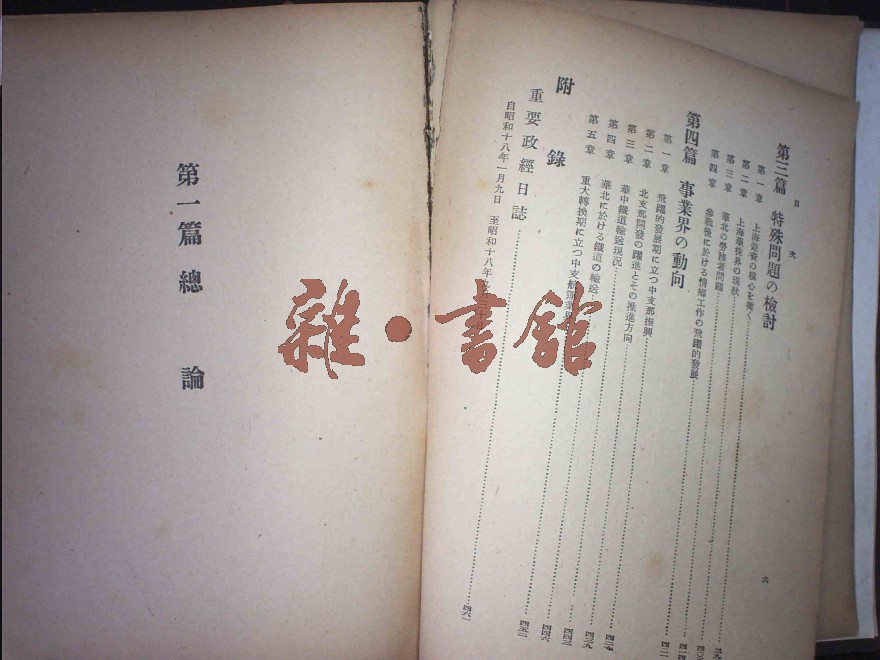 目次
第三篇 特殊問題の檢討
第一章 上海
第二章 上海
第三章 華北の勞務者問題
第四章 參戰後に於ける清鄉工作の飛躍的發展
第四篇 事業界の動向
第一章 飛躍的發展期に立つ中支那振興
第二章 北支那開發の躍進とその推進方向
第三章 華中鐵道輸送現況
第四章 華北に於ける鐵道の輸送
第五章 重大轉換期に立つ中支
附錄
重要政經日誌 四六一
自昭和十八年一月九日 至昭和十八年
六
第一篇 總論
雜·書館